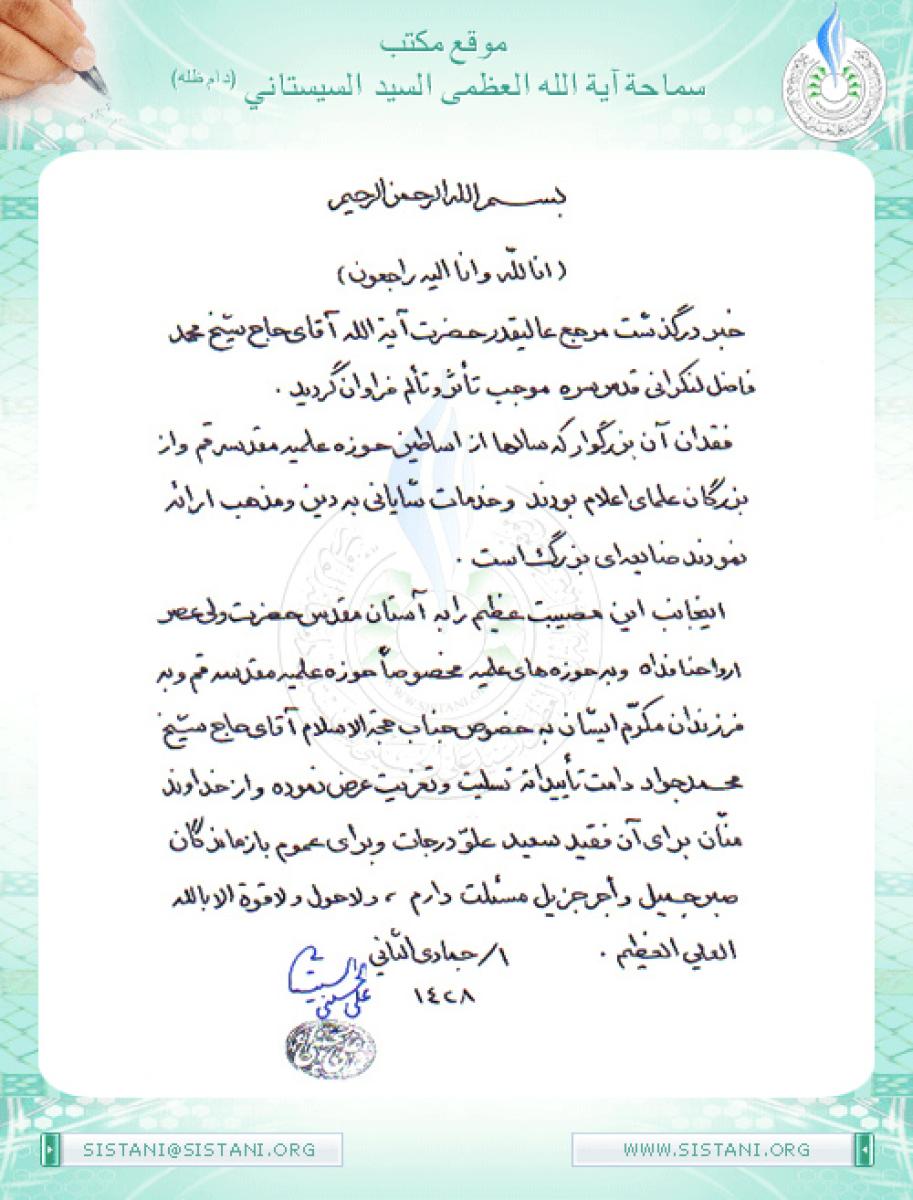 موقع مكتب
سماحة آية الله العظمى السيد السيستاني (دام ظله)
بسم الله الرحمن الرحيم
(انا لله وانا اليه راجعون)
خبر درگذشت مرجع عاليقدر حضرت آية الله آقای حاج شيخ محمد
فاضل لنكرانی قدس سره موجب تأثر وتألم فراوان گرديد .
فقدان آن بزرگوار كه سالها از اساطين حوزه علميه مقدسه قم واز
بزرگان علمای اعلام بودند وخدمات شايانی به دين ومذهب ارائه
نمودند ضايعه ای بزرگ است .
اينجانب اين مصيبت عظيم را به آستان مقدس حضرت ولی عصر
ارواحنا فداه وبه حوزه های علميه مخصوصاً حوزه علميه مقدسه قم وبه
فرزندان مكرّم ايشان به خصوص جناب حجة الاسلام آقای حاج شيخ
محمد جواد دامت تأييداته تسليت وتعزيت عرض نموده واز خداوند
منّان برای آن فقيد سعيد علوّ درجات وبرای عموم بازماندگان
صبر جميل وأجر جزيل مسئلت دارم ، ولا حول ولا قوة الا بالله
العلي العظيم .
١/ جمادی الثاني
١٤٢٨
علی الحسيني السيستاني
WWW.SISTANI.ORG
SISTANI@SISTANI.ORG
WWW.SISTANI.ORG